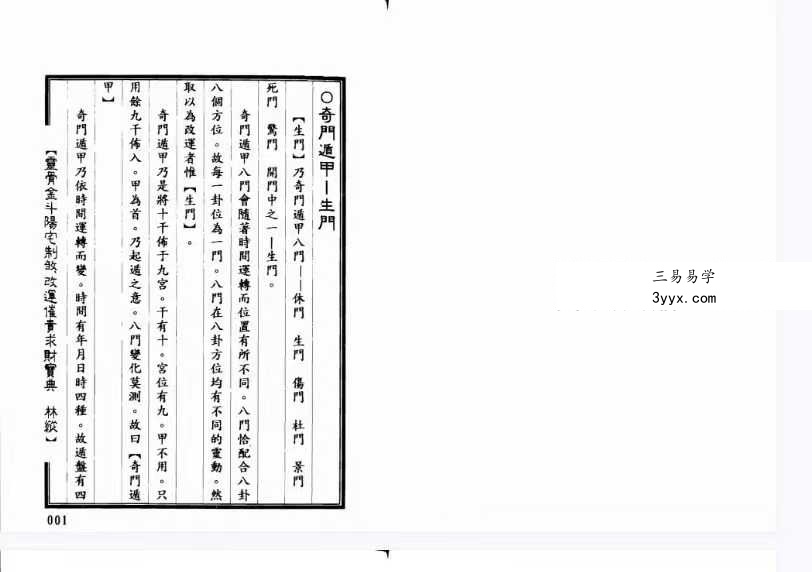 ○奇門遁甲—生門
【生門】乃奇門遁甲八門——休門 生門 傷門 杜門 景門
死門 驚門 開門中之一—生門。
奇門遁甲八門會隨著時間運轉而位置有所不同。八門恰配合八卦
八個方位。故每一卦位為一門。八門在八卦方位均有不同的靈動。然
取以為改運者惟【生門】。
奇門遁甲乃是將十干佈于九宮。干有十。宮位有九。甲不用。只
用餘九干佈入。甲為首。乃起遁之意。八門變化莫測。故曰【奇門遁
甲】
奇門遁甲乃依時間運轉而變。時間有年月日時四種。故遁盤有四
【靈骨金斗陽宅制煞改運催貴求財寶典 林縱】
001
三易易学
3yyx.com